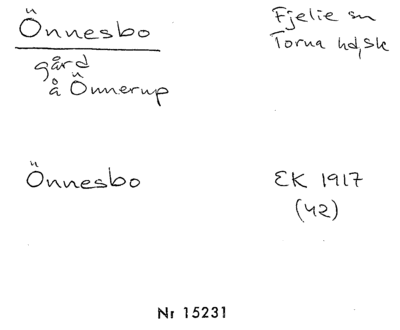 Önnesbo
Fjelie sn
Torna hd, Sk
gård
å Önnerup
Önnesbo
EK 1917
(42)
Nr 15231